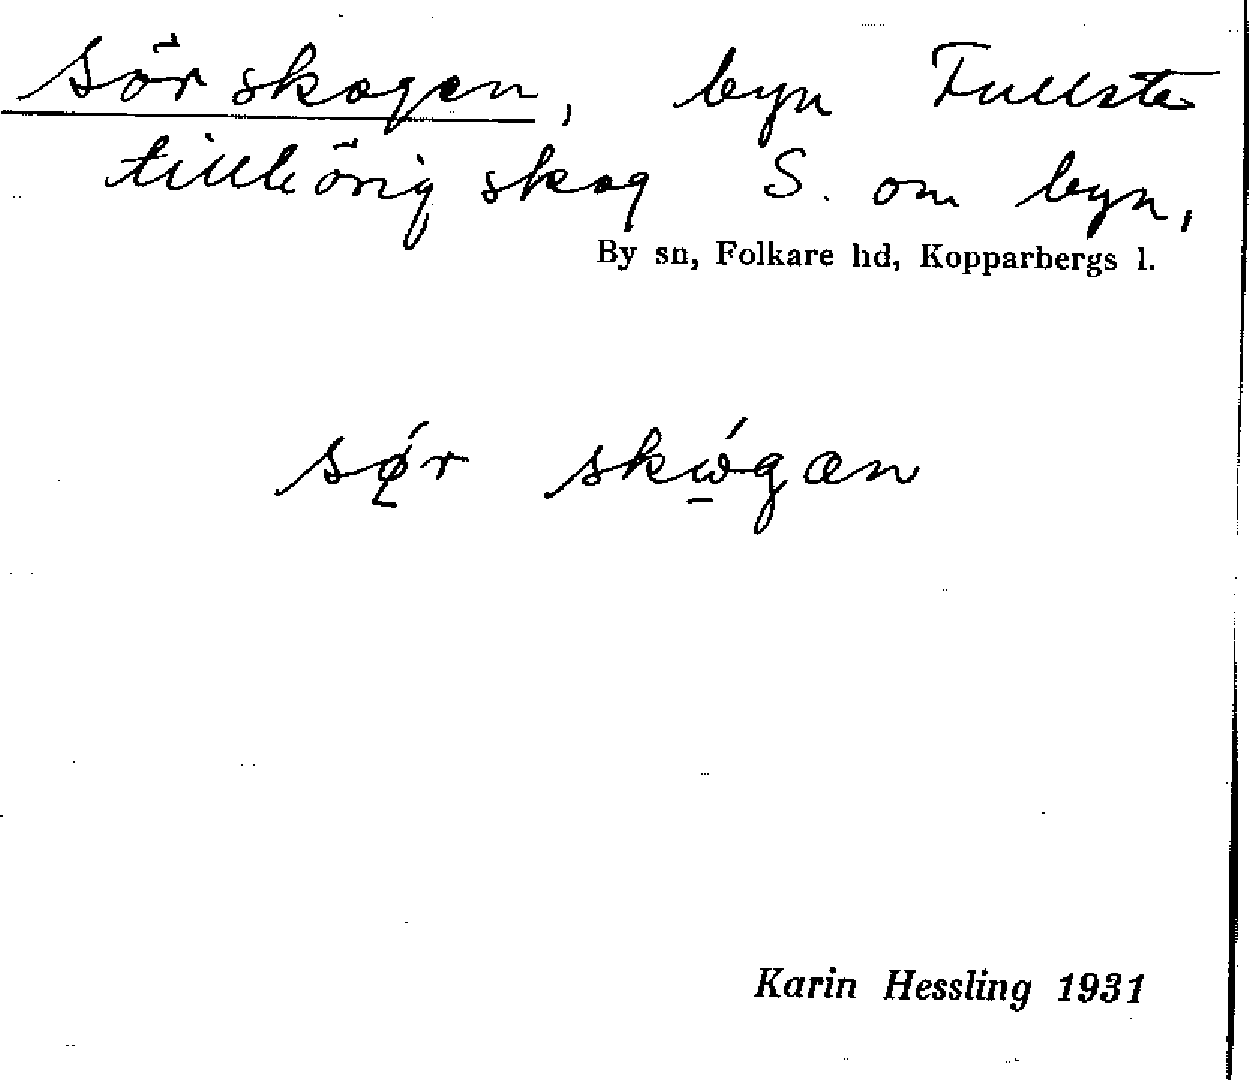 Sör skogen, byn Fullsta
tillhörig skog S. om byn,
By sn, Folkare hd, Kopparbergs l.
sǿ̨r skώ̱gæn
Karin Hessling 1931